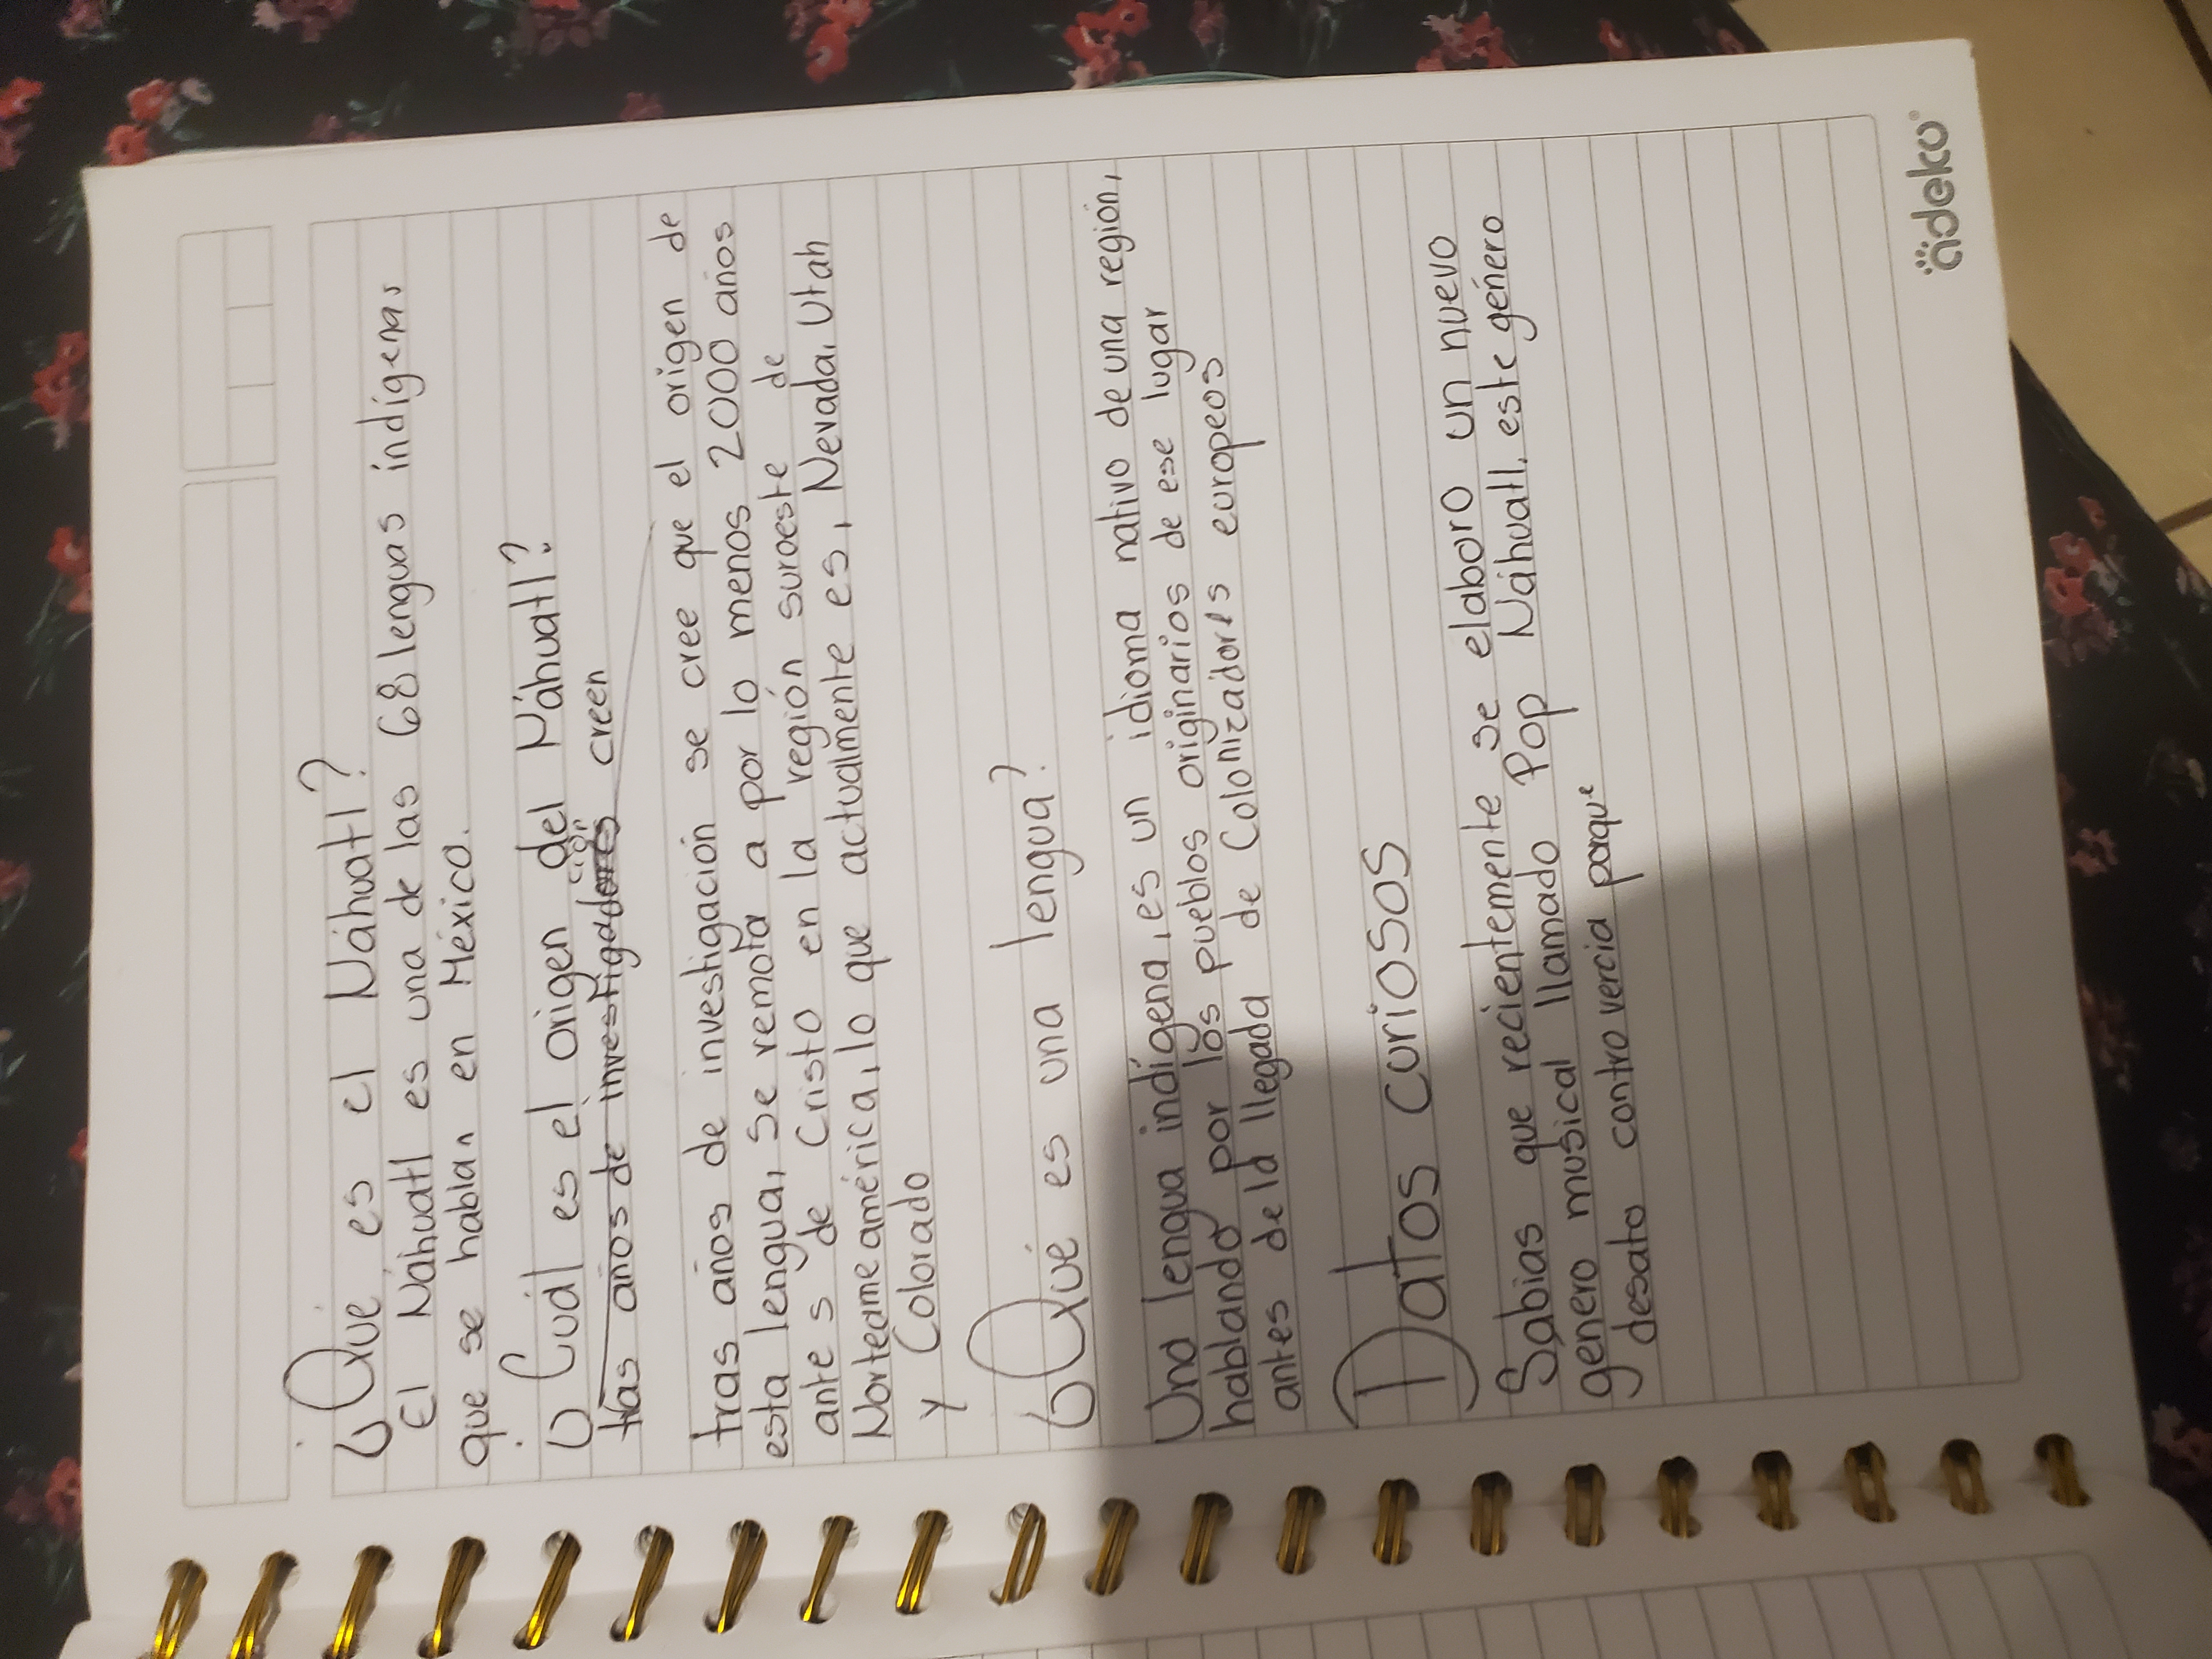 ¿Qué es el Náhuatl?
El Náhuatl es una de las 68 lenguas indígenas
que se hablan en México.
¿Cuál es el origen del Náhuatl?
tras años de investigadores creen
ción
tras años de investigación se cree que el origen de
esta lengua, se remota a por lo menos 2000 años
antes de Cristo en la región suroeste de
Norteamérica, lo que actualmente es, Nevada, Utah
y Colorado
¿Qué es una lengua?
Una lengua indígena, es un idioma nativo de una región,
hablando por los pueblos originarios de ese lugar
antes de la llegada de Colonizadores europeos
Datos curiosos
Sabias que recientemente se elaboro un nuevo
genero musical llamado Pop Náhuatl, este género
desato controvercia porque
adeko